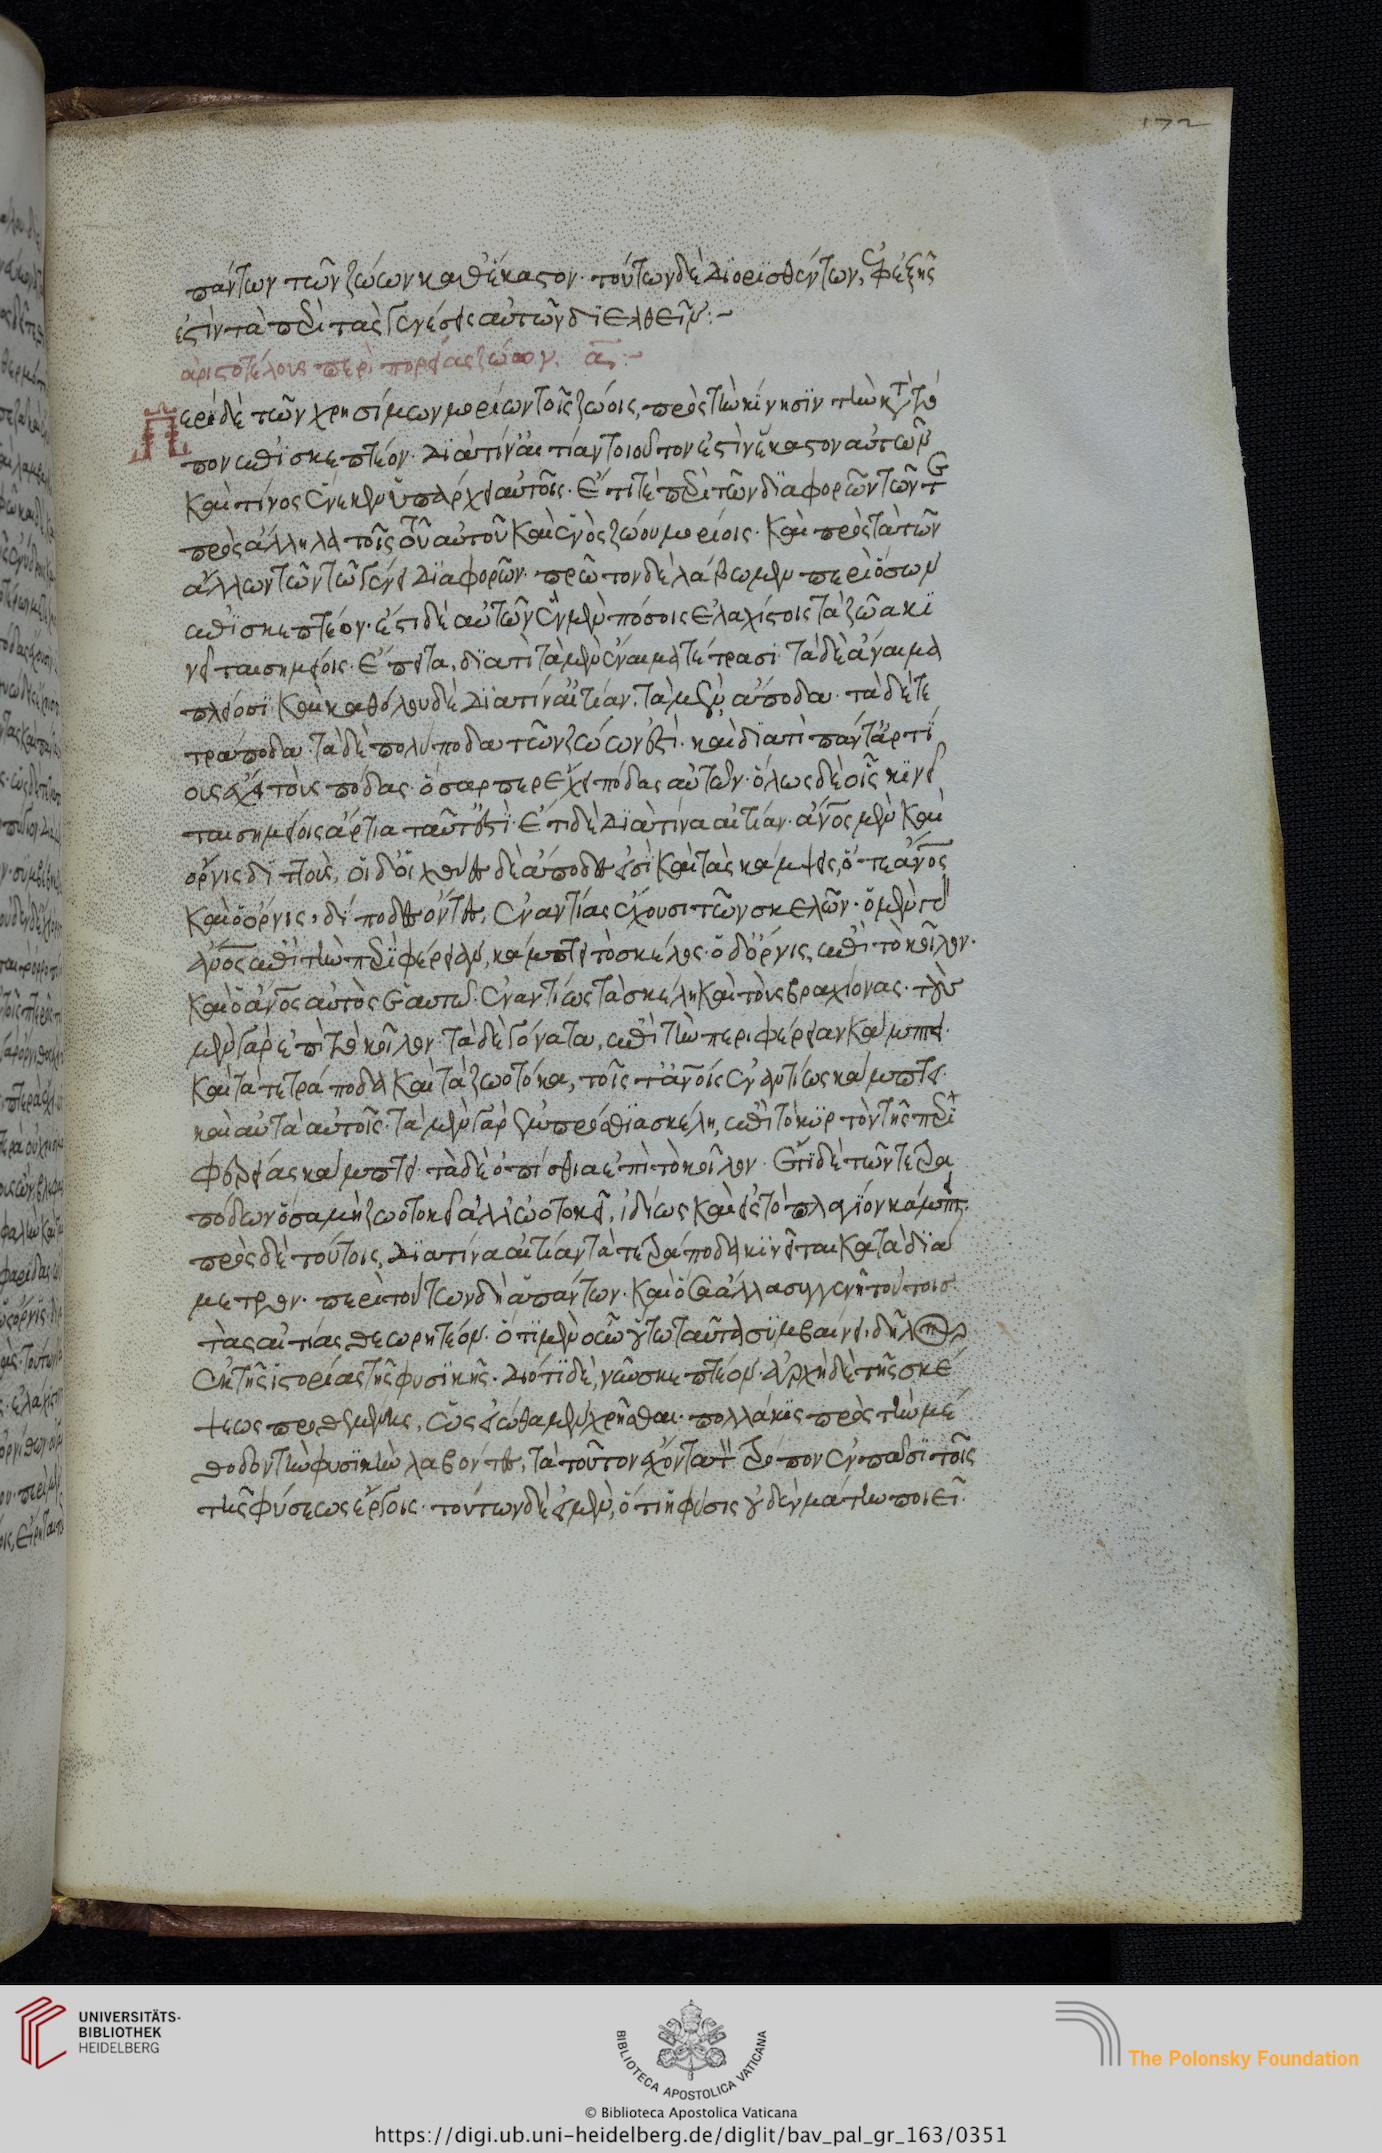 172
πάντων τῶν ζώων καθ' ἕκαστον· τούτων δὲ διορισθέντων, ἐφεξῆς
ἐστὶν τὰ περὶ τὰς γενέσεις αὐτῶν διελθεῖν:~
ἀριστοτέλους περὶ πορείας ζώων. α:~
Περὶ δὲ τῶν χρησίμων μορίων τοῖς ζώοις, πρὸς τὴν κίνησιν τὴν κτ τό
πον ἐπισκεπτέον· διὰ τίν' αἰτίαν τοιοῦτον ἐστὶν ἕκαστον αὐτῶν
καὶ τίνος ἕνεκεν ὑπάρχει αὐτοῖς· ἔτι τὲ περὶ τῶν διαφορῶν τῶν τε
πρὸς ἄλληλα τοῖς τοῦ αὐτοῦ καὶ ἑνὸς ζώου μορίοις· καὶ πρὸς τὰ τῶν
ἄλλων τῶν τῶ γένει διαφορῶν· πρῶτον δὲ λάβωμεν περὶ ὅσων
ἐπισκεπτέον· ἔστι δὲ αὐτῶν ἓν μὲν πόσοις ἐλαχίστοις τὰ ζῶα κι
νεῖται σημείοις· ἔπειτα, διατί τὰ μὲν ἔναιμα τέτρασι· τὰ δὲ ἄναιμα
πλείοσι· καὶ καθόλου δὲ διὰ τίν' αἰτίαν, τὰ μὲν ἄποδα· τὰ δὲ τε
τράποδα· τὰ δὲ πολύποδα τῶν ζώων ἐστί· καὶ διατί πάντ' ἀρτί
ους ἔχει τοὺς πόδας· ὅσαπερ ἔχει πόδας αὐτῶν· ὅλως δὲ οἷς κινεῖ
ται σημείοις ἄρτια ταῦτ' ἐστί· ἔτι δὲ διὰ τίνα αἰτίαν· ἄνος μὲν καὶ
ὄρνις δίπους, οἱ δ' ἰχθύες δὲ ἄποδες εἰσὶ καὶ τὰς κάμψεις, ὅ τε ἄνος
καὶ ὁ ὄρνις, δίποδες ὄντες, ἐναντίας ἔχουσι τῶν σκελῶν· ὁ μὲν γὰρ
ἄνος ἐπὶ τὴν περιφέρειαν, κάμπτει τὸ σκέλος· ὁ δ' ὄρνις, ἐπὶ τὸ κοῖλον·
καὶ ὁ ἄνος αὐτὸς ἑαυτῶ· ἐναντίως τὰ σκέλη καὶ τοὺς βραχίονας· τοὺς
μὲν γὰρ ἐπὶ τὸ κοῖλον· τὰ δὲ γόνατα, ἐπὶ τὴν περιφέρειαν κάμπτει·
καὶ τὰ τετράποδα καὶ τὰ ζωοτόκα, τοῖς τ' ἀνοις ἐναντίως κάμπτει·
καὶ αὐτὰ αὑτοῖς· τὰ μὲν γὰρ ἐμπρόσθια σκέλη, ἐπὶ τὸ κυρτὸν τῆς περι
φερείας κάμπτει· τὰ δὲ ὀπίσθια ἐπὶ τὸ κοῖλον· ἔτι δὲ τῶν τετρα
πόδων ὅσα μὴ ζωοτοκεῖ ἀλλ' ὠοτοκεῖ, ἰδίως καὶ εἰς τὸ πλάγιον κάμπτει·
πρὸς δὲ τούτοις, διὰ τίνα αἰτίαν τὰ τετράποδα κινεῖται κατὰ διά
μετρον· περὶ τούτων δὴ ἁπάντων· καὶ ὅσα ἄλλα συγγενῆ τούτοις
τὰς αἰτίας θεωρητέον· ὅτι μὲν οὖν οὕτω ταῦτα συμβαίνει, δῆλον
ἐκ τῆς ἱστορίας τῆς φυσικῆς· διότι δὲ, νῦν σκεπτέον· ἀρχὴ δὲ τῆς σκέ
ψεως προθεμένοις, οἷς εἰώθαμεν χρῆσθαι· πολλάκις πρὸς τὴν μέ
θοδον τὴν φυσικὴν λαβόντες, τὰ τοῦτον ἔχοντα τὸν τρόπον ἐν πᾶσι τοῖς
τῆς φύσεως ἔργοις· τούτων δὲ ἓν μὲν, ὅτι ἡ φύσις οὐδὲν μάτην ποιεῖ·
UNIVERSITÄTS-
BIBLIOTHEK
HEIDELBERG
BIBLIOTECA APOSTOLICA VATICANA
The Polonsky Foundation
© Biblioteca Apostolica Vaticana
https://digi.ub.uni-heidelberg.de/diglit/bav_pal_gr_163/0351